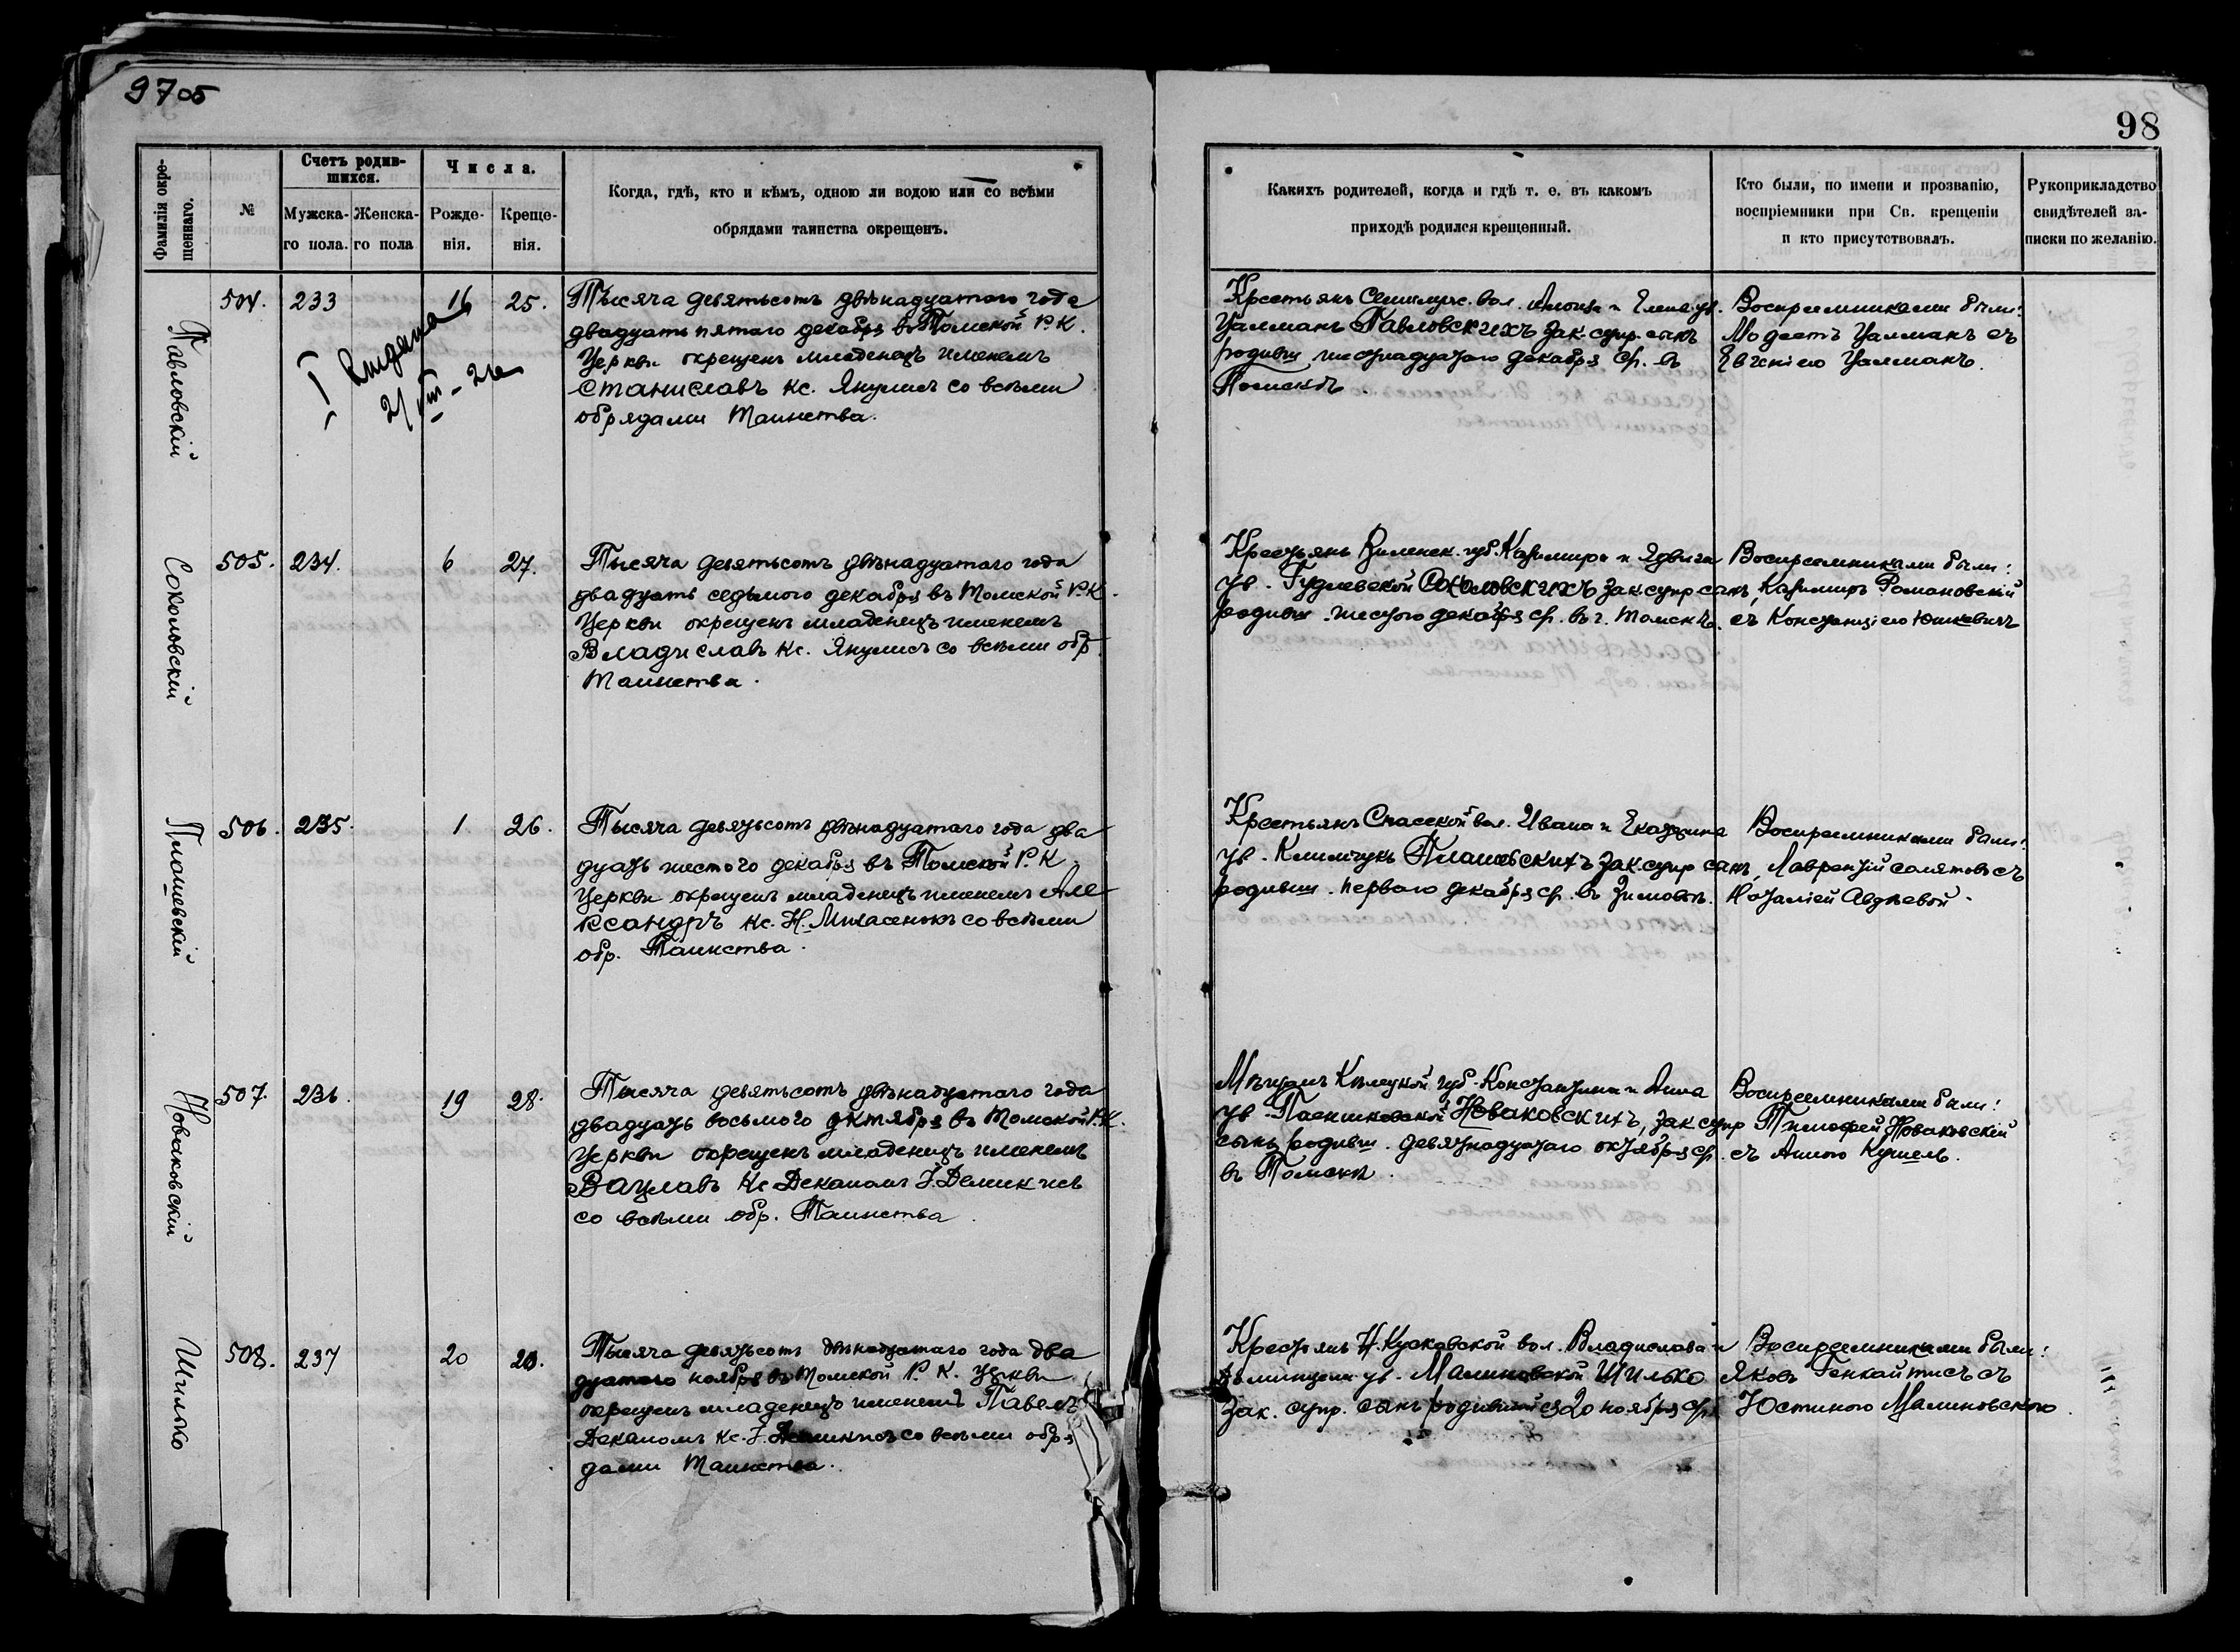 9705
98
Фамилія окре-
щеннаго.
№
Счетъ родив-
шихся.
Мужска-
го пола.
Женска-
го пола
Числа.
Рожде-
нія.
Креще-
нія.
Когда, гдѣ, кто и кѣмъ, одною ли водою или со всѣми
обрядами таинства окрещенъ.
Какихъ родителей, когда и гдѣ т. е. въ какомъ
приходѣ родился крещенный.
Кто были, по имени и прозванію,
воспріемники при Св. крещеніи
и кто присутствовалъ.
Рукоприкладство
свидѣтелей за-
писки по желанію.
Павловскій
504. 233 16 25.
Тысяча девятьсотъ двѣнадцатаго года
двадцать пятаго декабря въ Томской Р. К.
Церкви окрещенъ младенецъ именемъ
Станиславъ кс. Янулисъ со всѣми
обрядами Таинства.
Крестьянъ вол. и ур.
Уалманъ Павловскихъ зак. супр. сынъ
родивш шестнадцатаго декабря ср. въ
Томскѣ.
Воспреемниками были:
Модестъ Уалманъ съ
Евгеніею Уалманъ.
Сокольвскій
505. 234. 6 27.
Тысяча девятьсотъ двѣнадцатаго года
двадцать седьмого декабря въ Томской Р. К.
Церкви окрещенъ младенецъ именемъ
Владиславъ Кс. Янулисъ со всѣми обр.
Таинства.
Крестьянъ Виленск. губ. Казимира и Ядвига
ур. Гудлевской Сокаловскихъ зак супр сынъ,
родивш. шестого декабря ср. въ г. Томскѣ.
Воспреемниками были:
Казимиръ Романовскій
съ Констанціею Юшкевичъ
Плошевскій
506. 235. 1 26.
Тысяча девятьсотъ двѣнадцатаго года два
дцать шестого декабря въ Томской Р. К.
Церкви окрещенъ младенецъ именемъ Але
ксандръ кс. Н. Михасенокъ со всѣми
обр. Таинства.
Крестьянъ Спасской вол. Ивана и Екатерина
ур. Климчукъ зак. супр сынъ,
родивш. перваго декабря ср. въ
Воспреемниками были:
Лаврентій съ
Наталіей Авдѣевой.
Новаковскій
507. 236. 19 28.
Тысяча девятьсотъ двѣнадцатаго года
двадцать восьмого октября въ Томской Р. К.
Церкви окрещенъ младенецъ именемъ
Вацлавъ Кс Деканомъ І. Демикисъ
со всѣми обр. Таинства.
Мѣщанъ Кѣлецкой губ. Константина и Анна
ур. Новаковскихъ, зак супр
сынъ родивш. девятнадцатаго октября ср.
въ Томскѣ.
Воспреемниками были:
Тимофей Новаковскій
съ Анною Кушель.
Шилько
508. 237 20 20.
Тысяча девятьсотъ двѣнадцатаго года два
дцатаго ноября въ Томской Р. К. Церкви
окрещенъ младенецъ именемъ Павелъ
Деканомъ кс. І. Демикисъ со всѣми обря
дами Таинства.
Крестьянъ Н. Кусковской вол. Владислава и
ур. Малиновской Шилько
Зак. супр. сынъ родившійся 20 ноября ср.
Воспреемниками были:
Яковъ Генкайтисъ съ
Юстиною Малиновскою.